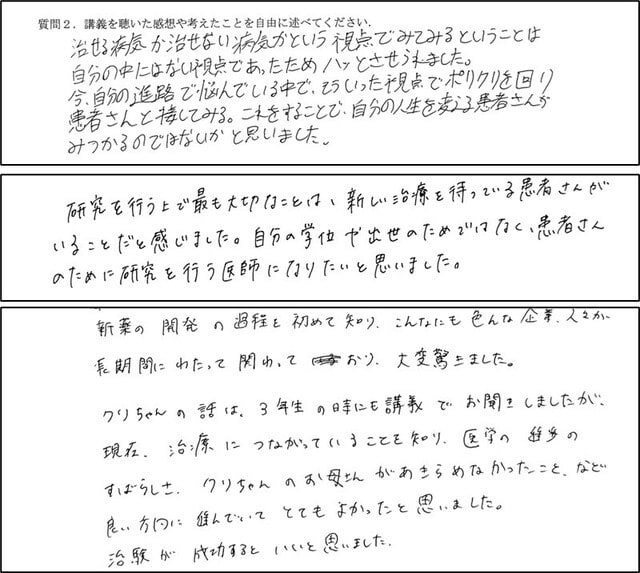 質問２．講義を聴いた感想や考えたことを自由に述べてください．
治せる病気か治せない病気かという視点でみてみるということは
自分の中にはない視点であったためハッとさせられました。
今、自分の進路で悩んでいる中で、そういった視点でポリクリを回り
患者さんと接してみる。これをすることで、自分の人生を変える患者さんが
みつかるのではないかと思いました。
研究を行う上で最も大切なことは、新しい治療を待っている患者さんが
いることだと感じました。自分の学位や出世のためではなく、患者さん
のために研究を行う医師になりたいと思いました。
新薬の開発の過程を初めて知り、こんなにも色んな企業、人々が
長期間にわたって関わって おり、大変驚きました。
クリちゃんの話は、3年生の時にも講義でお聞きしましたが、
現在、治療につながっていることを知り、医学の進歩の
すばらしさ、クリちゃんのお母さんがあきらめなかったこと、など
良い方向に進んでいてとてもよかったと思いました。
治験が成功するといいと思いました。